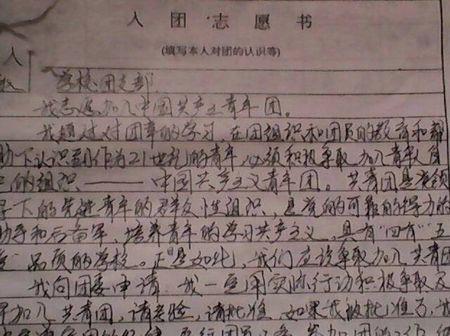 入团志愿书
(填写本人对团的认识等)
学校团支部
我志愿加入中国共产主义青年团。
我通过对团章的学习,在团组织和团员的教育和帮
助下认识到作为21世纪的青年,必须积极争取加入青年人自
己的组织——中国共产主义青年团。共青团是党领
导下的先进青年的群众性组织,是党的可靠的得力的
助手和后备军,培养青年的学习共产主义,具有"四有"五
品质的学校。正是如此,我们应该争取加入共青团
我向团委申请,我一定用实际行动积极争取及
早加入共青团,请考验,请批准。如果我被批准了,我